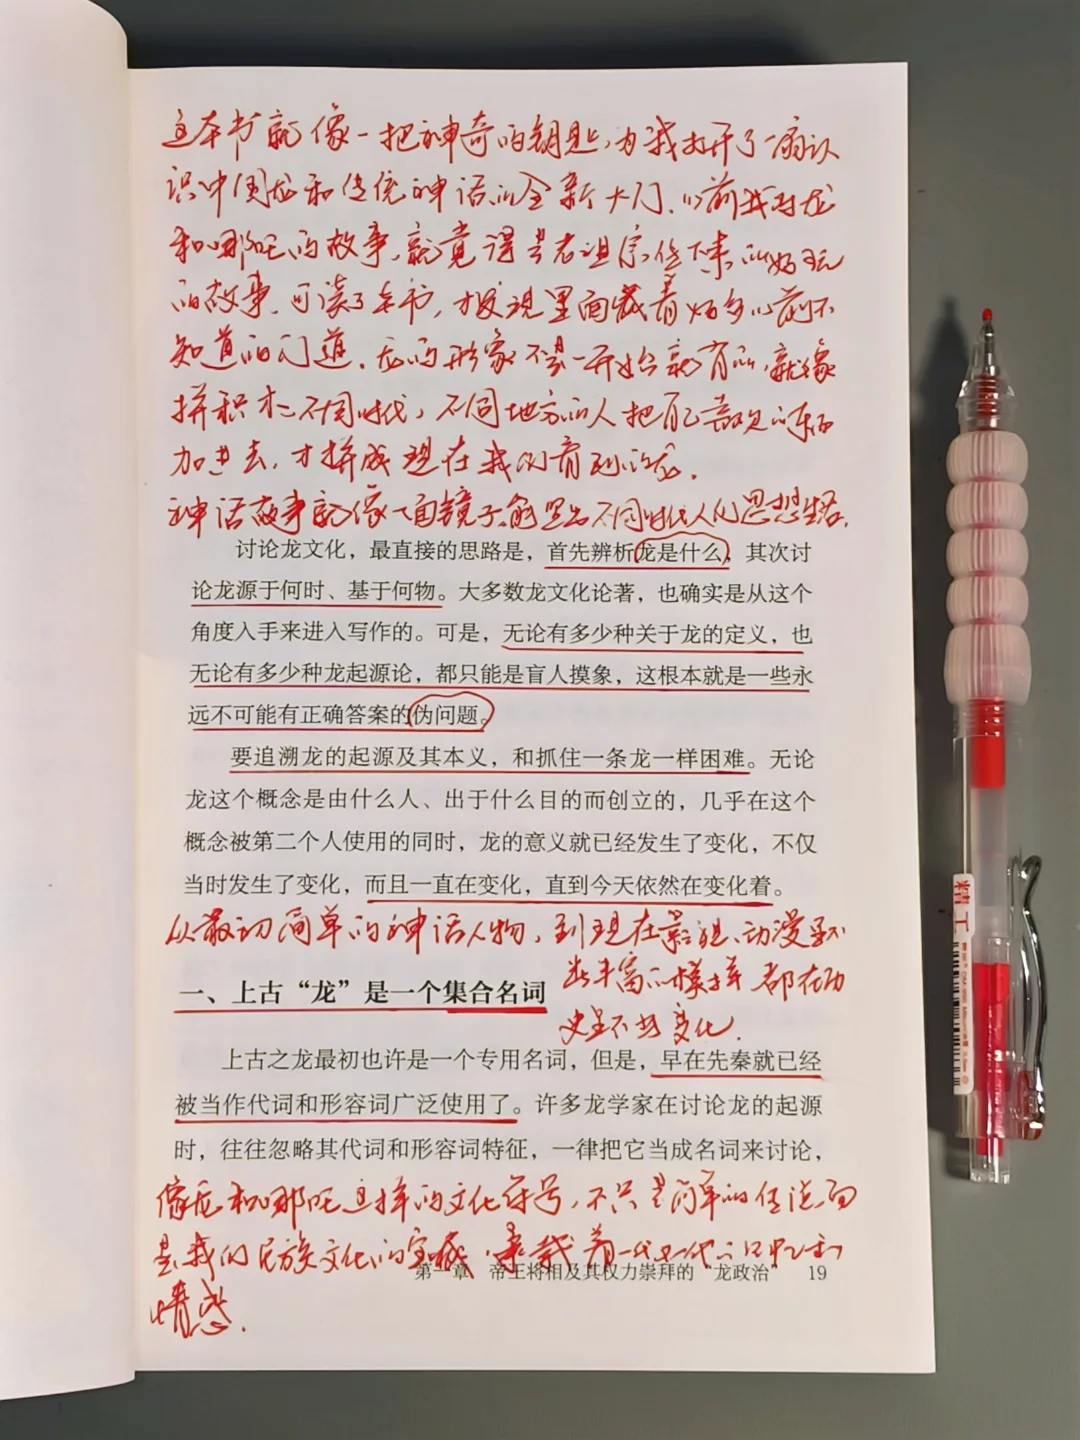 这本书就像一把神奇的钥匙,为我打开了一扇认
识中国龙和传统神话的全新大门.以前我对龙
和哪吒的故事,就觉得是老祖宗传下来的好玩
的故事.可读了本书,才发现里面藏着好多以前不
知道的门道.龙的形象不是一开始就有的,就像
拼积木,不同时代,不同地方的人把自己喜欢的东西
加进去,才拼成现在我们看到的龙.
神话故事就像一面镜子,能照出不同时代人们思想生活.
讨论龙文化，最直接的思路是，首先辨析龙是什么，其次讨
论龙源于何时、基于何物。大多数龙文化论著，也确实是从这个
角度入手来进入写作的。可是，无论有多少种关于龙的定义，也
无论有多少种龙起源论，都只能是盲人摸象，这根本就是一些永
远不可能有正确答案的伪问题。
要追溯龙的起源及其本义，和抓住一条龙一样困难。无论
龙这个概念是由什么人、出于什么目的而创立的，几乎在这个
概念被第二个人使用的同时，龙的意义就已经发生了变化，不仅
当时发生了变化，而且一直在变化，直到今天依然在变化着。
从最初简单的神话人物,到现在影视、动漫里不
出丰富的模样 都在历
史里不断变化.
一、上古“龙”是一个集合名词
上古之龙最初也许是一个专用名词，但是，早在先秦就已经
被当作代词和形容词广泛使用了。许多龙学家在讨论龙的起源
时，往往忽略其代词和形容词特征，一律把它当成名词来讨论，
像龙和哪吒这样的文化符号,不只是简单的传说,而
是我们民族文化的宝藏,承载着一代又一代的记忆和
情感.
第一章 帝王将相及其权力崇拜的“龙政治” 19
精工